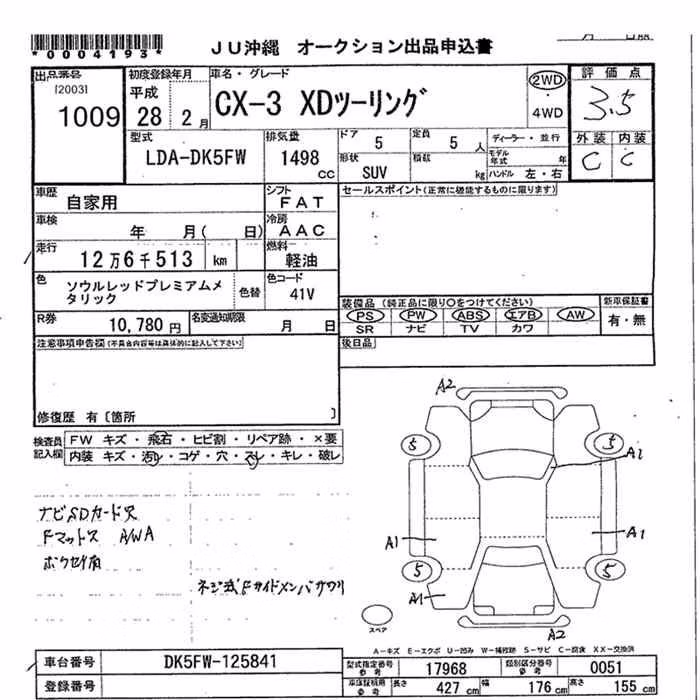 *0004193*
JU沖縄 オークション出品申込書
出品番号
[2003]
1009
初度登録年月
平成
28 2月
車名・グレード
CX-3 XDツーリング
2WD
・
4WD
評価点
3.5
外装 内装
C C
型式
LDA-DK5FW
排気量
1498
cc
ドア
5
定員
5 人
形状
SUV
積載
kg
ディーラー・並行
モデル年式 年
ハンドル 左・右
車歴
自家用
シフト
FAT
セールスポイント(正常に機能するものに限ります)
車検
年 月( 日)
冷房
AAC
走行
12万6千513 km
燃料
軽油
色
ソウルレッドプレミアムメタリック
色替
色コード
41V
装備品(純正品に限り○をつけてください)
PS PW ABS エアB AW
SR ナビ TV カワ
新車保証書
有・無
R券
10,780円
名変通知期限
月 日
後日品
注意事項申告欄(不具合内容等は具体的に記入して下さい)
修復歴 有〔箇所 〕
検査員記入欄
FW キズ・飛石・ヒビ割・リペア跡・×要
内装 キズ・汚レ・コゲ・穴・スレ・キレ・破レ
ナビSDカード欠
Fマットス A/WA
ボクセイ有
ネジ式Fサイドメンバサワリ
A2
5
5
A1
A1
A1
5
5
A1
A2
スペア
A-キズ E-エクボ U-凹み W-補修跡 S-サビ C-腐食 XX-交換済
車台番号
DK5FW-125841
登録番号
型式指定番号
参考
17968
類別区分番号
参考
0051
車庫証明用
参考
長さ
427 cm
幅
176 cm
高さ
155 cm